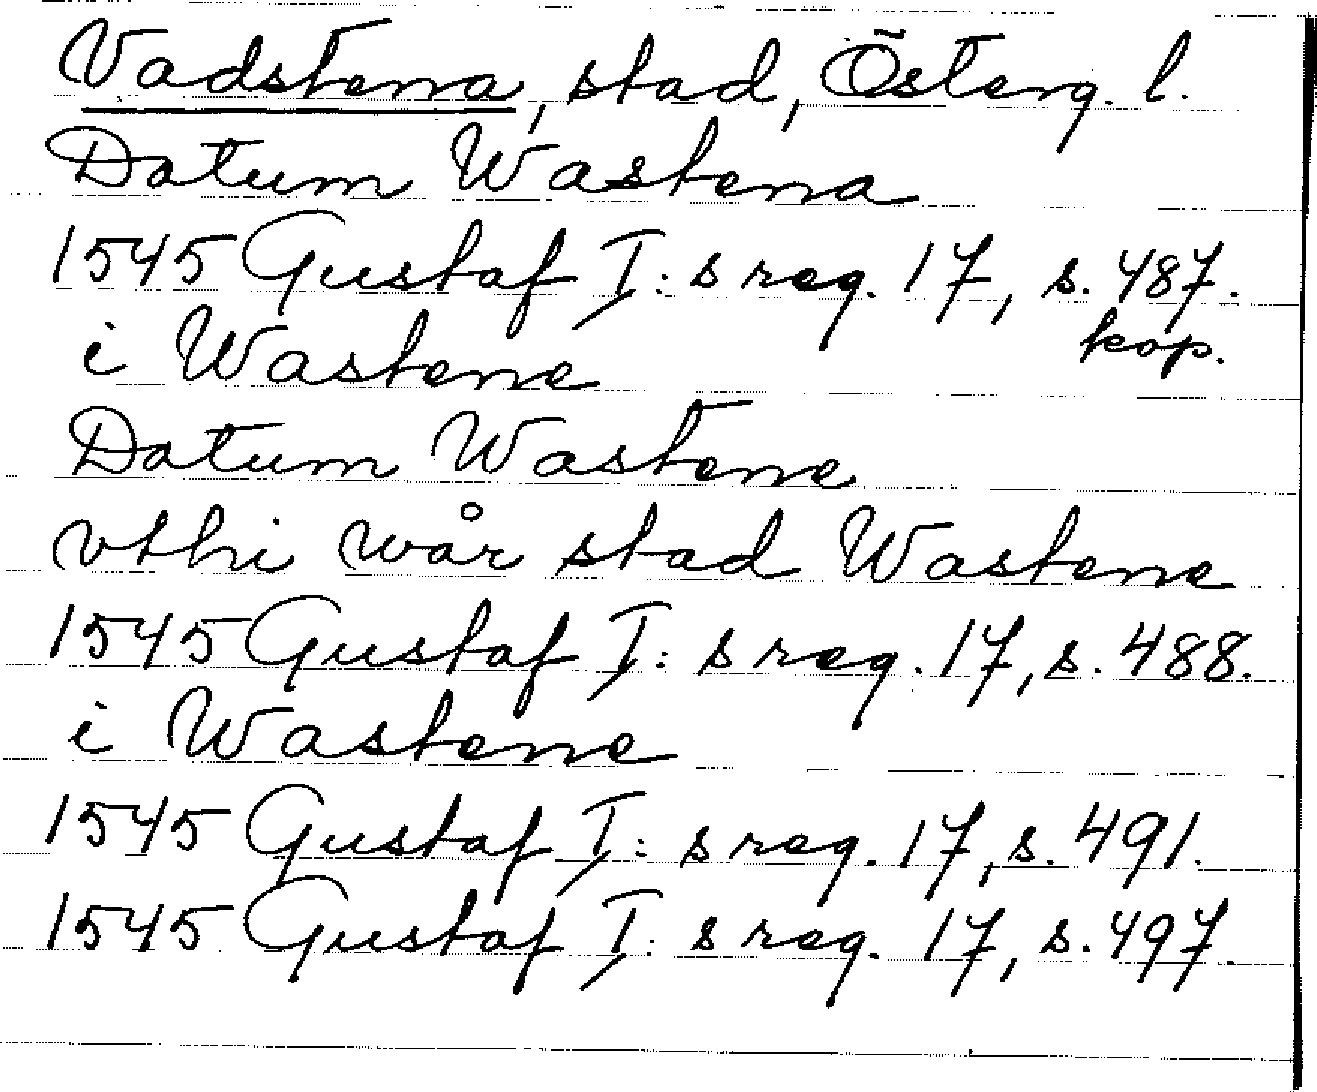 Vadstena, stad, Österg. l.
Datum Wastena
1545 Gustaf I:s reg. 17, s. 487.
kop.
i Wastene
Datum Wastene
vthi wår stad Wastene
1545 Gustaf I:s reg. 17, s. 488.
i Wastene
1545 Gustaf I:s reg. 17, s. 491.
1545 Gustaf I:s reg. 17, s. 497.